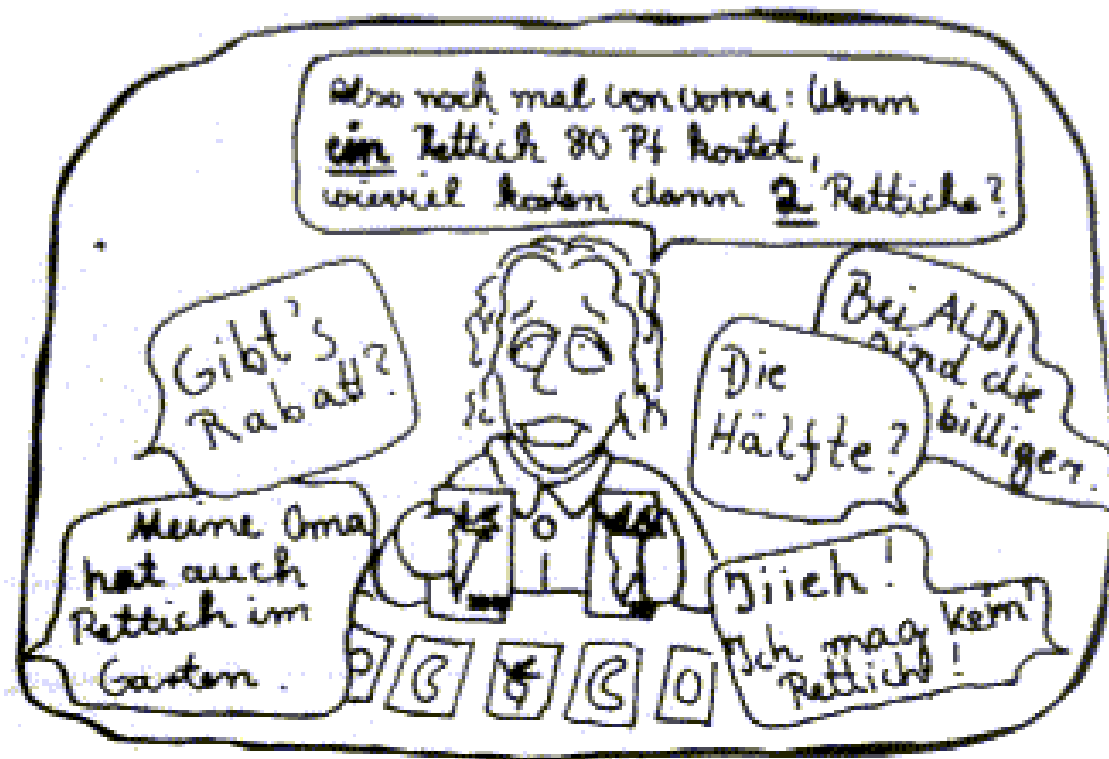 Also noch mal von vorne: Wenn
ein Rettich 80 Pf kostet,
wieviel kosten dann 2 Rettiche?
Gibt's
Rabatt?
Bei ALDI
sind die
billiger.
Die
Hälfte?
Meine Oma
hat auch
Rettich im
Garten.
Jiieh!
Ich mag kein
Rettich!